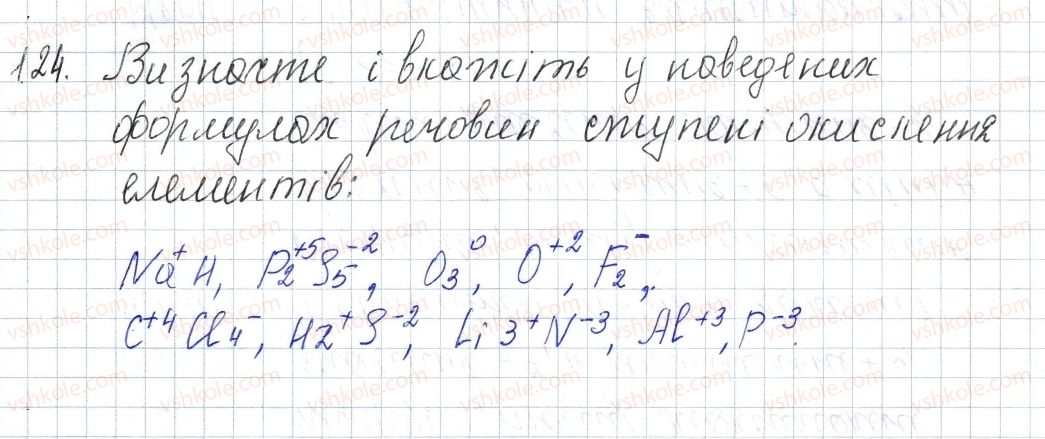 1.24. Визначте і вкажіть у наведених
формулах речовин ступені окиснення
елементів:
Na⁺H, P₂⁺⁵S₅⁻², O₃⁰, O⁺², F₂⁻,.
C⁺⁴Cl₄⁻, H₂⁺S⁻², Li₃⁺N⁻³, Al⁺³, P⁻³.